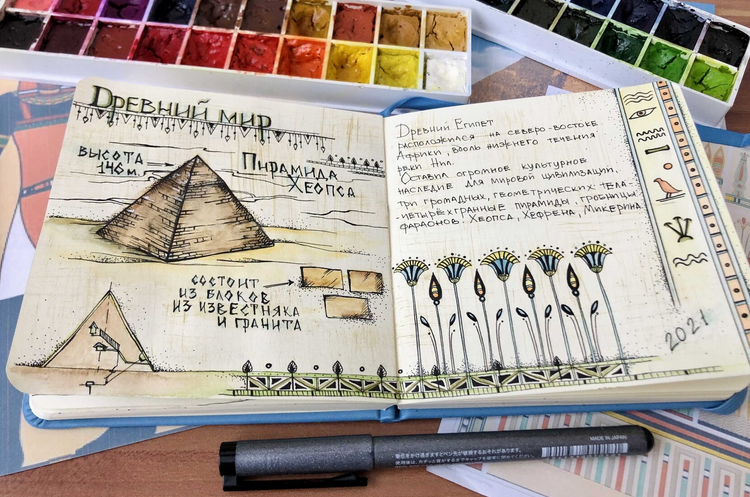 Древний мир
высота
146 м.
Пирамида
Хеопса
состоит
из блоков
из известняка
и гранита
Древний Египет
расположился на северо-востоке
Африки, вдоль нижнего течения
реки Нил.
Оставил огромное культурное
наследие для мировой цивилизации.
три громадных, геометрических тела-
-четырёхгранные пирамиды, гробницы
фараонов: Хеопса, Хефрена, Микерина.
2021
MADE IN JAPAN